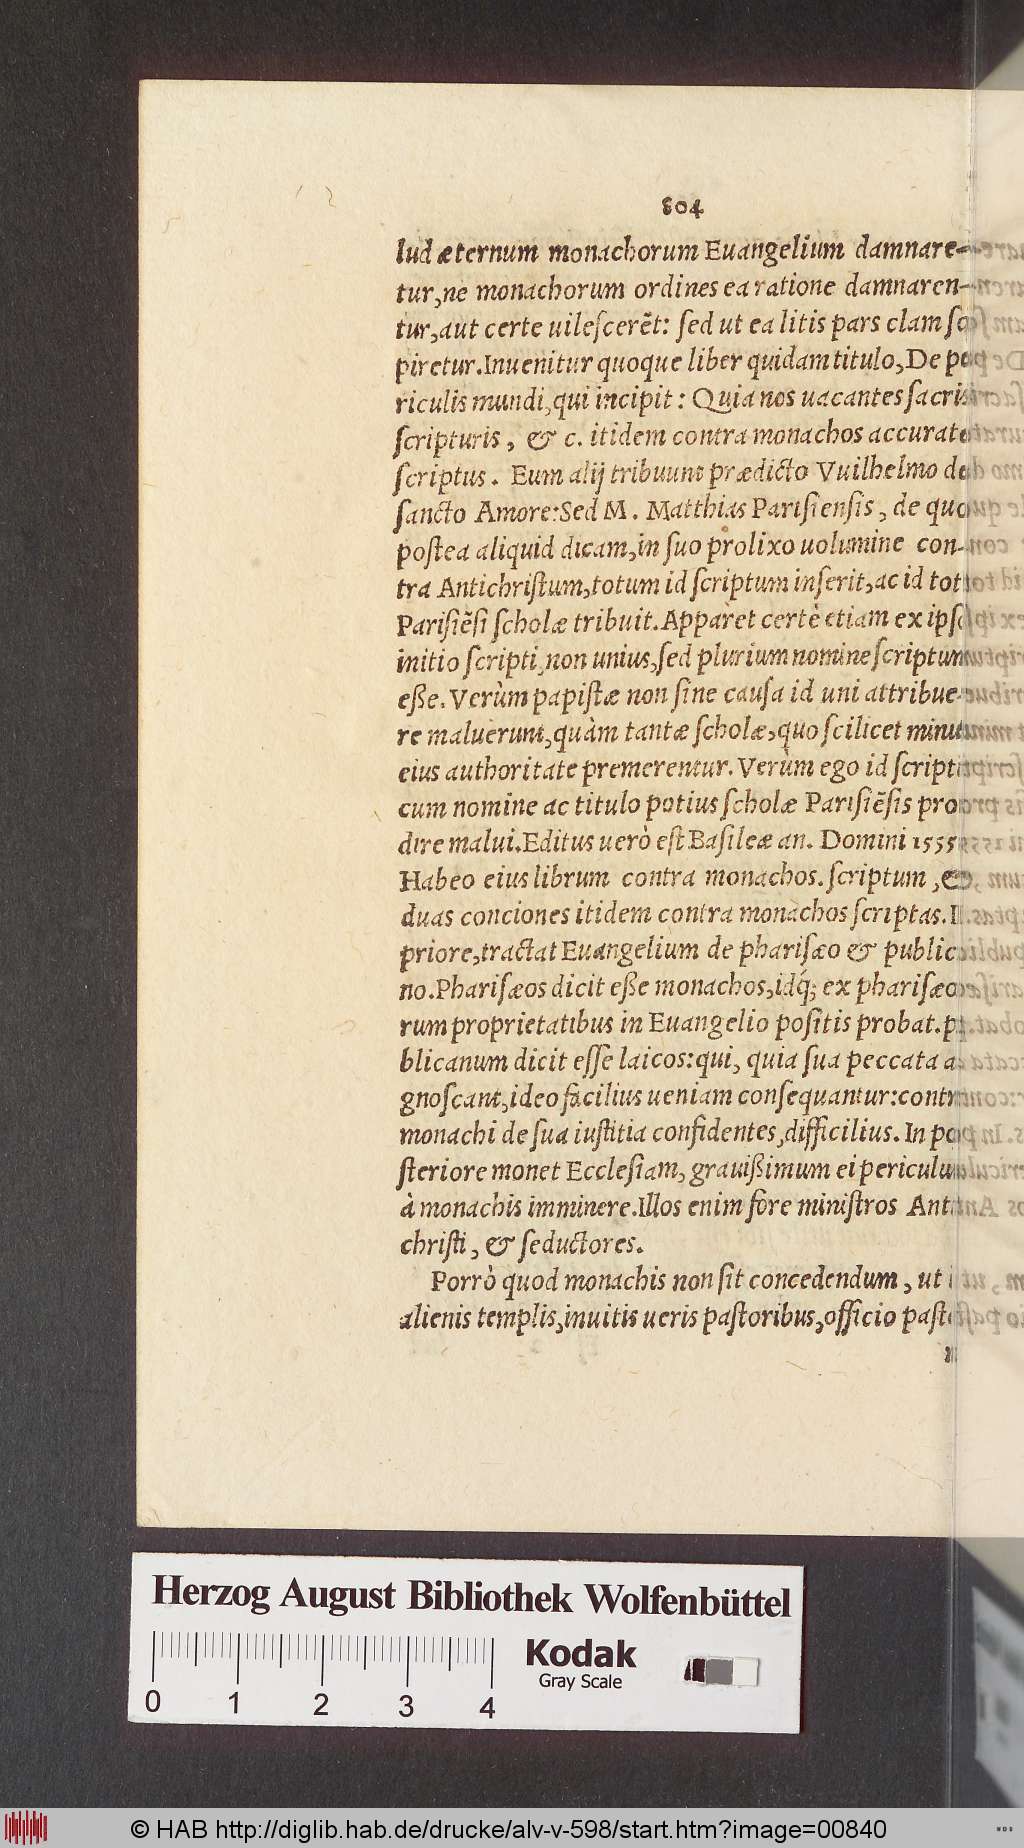 804
lud æternum monachorum Euangelium damnare-
tur,ne monachorum ordines ea ratione damnaren-
tur,aut certe uileſcerẽt: ſed ut ea litis pars clam ſo
piretur.Inuenitur quoque liber quidam titulo,De pe
riculis mundi,qui incipit: Quia nos uacantes ſacris
ſcripturis, & c. itidem contra monachos accurate
ſcriptus. Eum alij tribuunt prædicto Vuilhelmo de
ſancto Amore:Sed M. Matthias Pariſienſis, de quo
poſtea aliquid dicam,in ſuo prolixo uolumine con-
tra Antichriſtum,totum id ſcriptum inſerit,ac id toti
Pariſiẽſi ſcholæ tribuit.Apparet certè etiam ex ipſo
initio ſcripti,non unius,ſed plurium nomine ſcriptum
eße.Verùm papiſtæ non ſine cauſa id uni attribue-
re maluerunt,quàm tantæ ſcholæ,quo ſcilicet minus
eius authoritate premerentur.Verùm ego id ſcriptũ
cum nomine ac titulo potius ſcholæ Pariſiẽſis pro
dire malui.Editus uerò eſt Baſileæ an. Domini 1555
Habeo eius librum contra monachos.ſcriptum,&
duas conciones itidem contra monachos ſcriptas.In
priore,tractat Euangelium de phariſæo & publica
no.Phariſæos dicit eße monachos,idq́; ex phariſæo
rum proprietatibus in Euangelio poſitis probat.pu
blicanum dicit eſſe laicos:qui, quia ſua peccata a-
gnoſcant,ideo facilius ueniam conſequantur:contra
monachi de ſua iuſtitia confidentes,difficilius. In po
ſteriore monet Eccleſiam, grauißimum ei periculum
à monachis imminere.Illos enim fore miniſtros Anti
chriſti, & ſeductores.
Porrò quod monachis non ſit concedendum, ut
alienis templis,inuitis ueris paſtoribus,officio paſto
Herzog August Bibliothek Wolfenbüttel
Kodak
Gray Scale
0 1 2 3 4
© HAB http://diglib.hab.de/drucke/alv-v-598/start.htm?image=00840